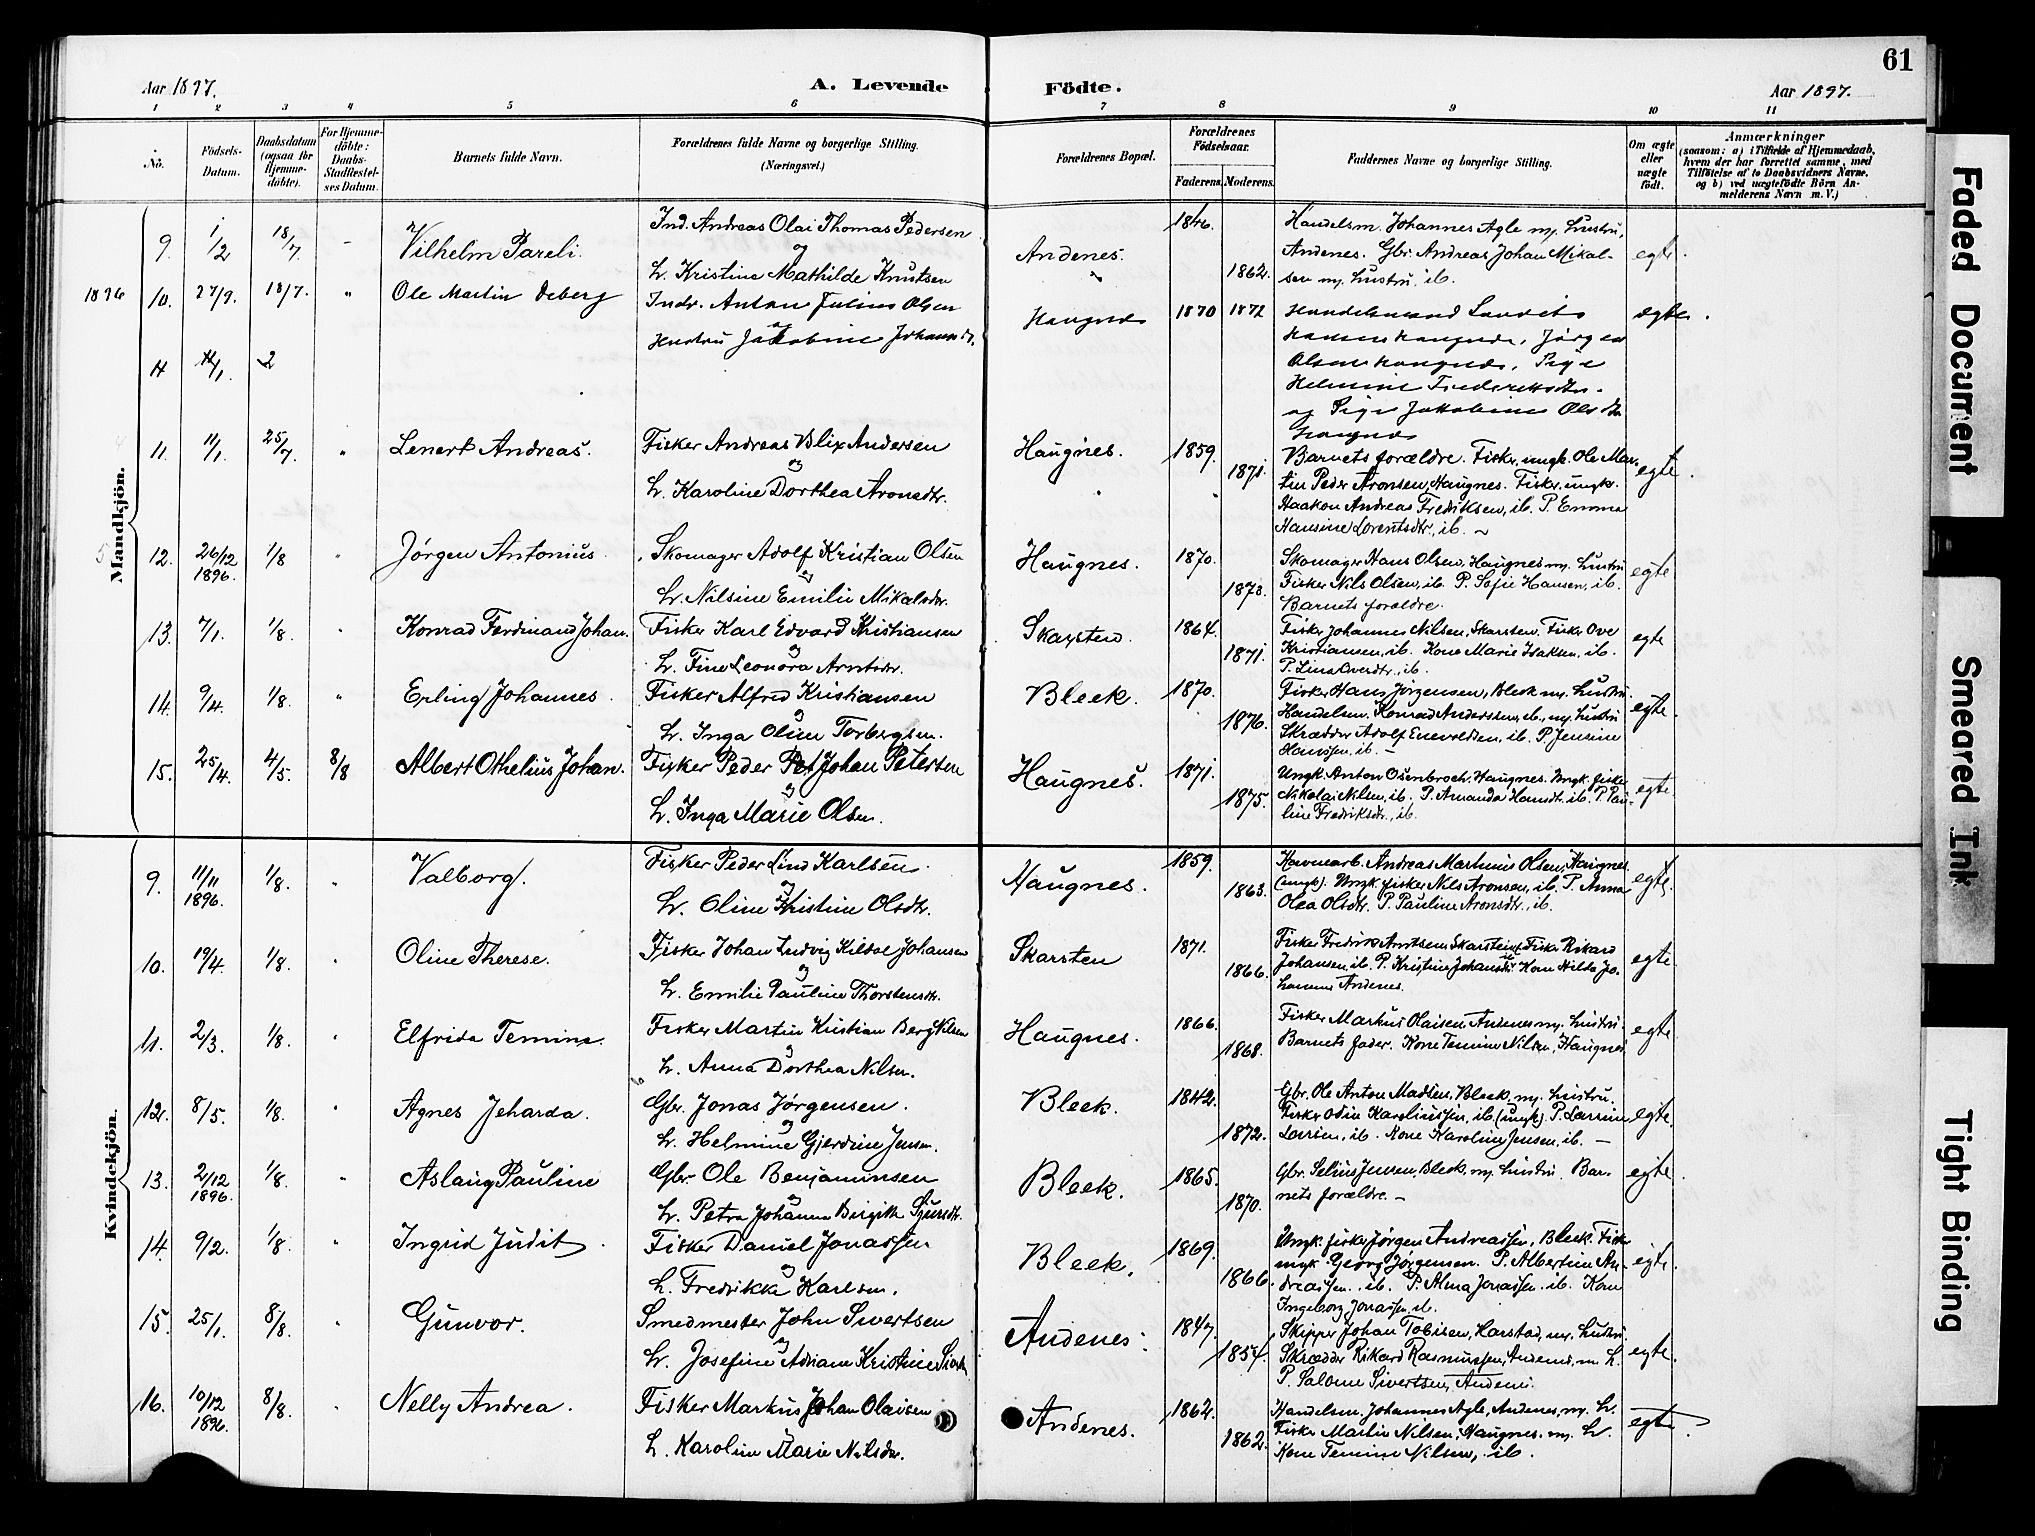 61
Aar 1897.
A. Levende
Födte.
Aar 1897.
1 2 3 4 5 6 7 8 9 10 11
No.
Födsels-
Datum.
Daabsdatum
(ogsaa for
Hjemme-
döbte).
For Hjemme-
döbte:
Daabs-
Stadfæstel-
ses Datum.
Barnets fulde Navn.
Forældrenes fulde Navne og borgerlige Stilling.
(Næringsvei.)
Forældrenes Bopæl.
Forældrenes
Födselsaar.
Faderens. Moderens.
Faddernes Navne og borgerlige Stilling.
Om ægte
eller
uægte
födt.
Anmærkninger
(saasom: a) i Tilfælde af Hjemmedaab,
hvem der har forrettet samme, med
Tilföielse af to Daabsvidners Navne,
og b) ved uægtefödte Börn An-
melderens Navn m. V.)
Mandkjön.
9. 1/2 18/7. – Vilhelm Pareli.
Ind. Andreas Olai Thomas Pedersen
og
h. Kristine Mathilde Knutsen
Andenes.
1846.
1862.
Handelsm. Johannes Agle m/ hustru,
Andenes. Gbr. Andreas Johan Mikal-
sen m/ hustru, ib.
egte.
1896 10. 27/9. 18/7. " Ole Martin Deberg
Indr. Anton Julius Olsen
og
Hustru Jakobine Johansdr.
Haugnes
1870 1872
Handelsmand Lauritz
Hansen Haugnes, Jörgen
Olsen Haugnes, Pige
Helmine Frederiksdtr.
og Pige Jakobine Olsdtr
Haugnes
ægte.
11 11/1. 2
11. 11/1. 25/7. " Lenert Andreas.
Fisker Andreas Blix Andersen
og
h. Karoline Dorthea Aronsdtr.
Haugnes.
1859.
1871.
Barnets forældre. Fisker, ungk. Ole Mar-
tin Peder Aronsen, Haugnes. Fisker, ungkr.
Haakon Andreas Fredriksen, ib. P. Emma
Hansine Lorentsdtr., ib. ~
egte.
5
12. 26/12 1896. 1/8 " Jörgen Antonius.
Skomager Adolf Kristian Olsen
og
h. Nilsine Emilie Mikalsdr.
Haugnes.
1870.
1873.
Skomager Hans Olsen, Haugnes m/ hustru
Fisker Nils Olsen, ib. P. Sofie Hansen, ib.
Barnets forældre.
egte
13. 7/1. 1/8. " Konrad Ferdinand Johan.
Fisker Karl Edvard Kristiansen
og
h. Fine Leonora Arntsdr.
Skarsten.
1864.
1871.
Fisker Johannes Nilsen, Skarsten. Fisker Ove
Kristiansen, ib. Kone Marie Isaksen, ib.
P. Lina Overdtr., ib.
egte
14. 9/4. 1/8. " Erling Johannes.
Fisker Alfred Kristiansen
og
h. Inga Oline Torbergsen.
Bleek.
1870.
1876.
Fisker Hans Jörgensen, Bleek m/ hustru.
Handelsm. Konrad Anderssen, ib., m/ hustru
Skrædder Adolf Enevoldsen, ib. P. Jensine
Hanssen, ib. –
egte.
15. 25/4. 4/5. 8/8 Albert Othelius Johan.
Fisker Peder Johan Petersen
og
h. Inga Marie Olsen.
Haugnes.
1871.
1875.
Ungk. Anton Osenbroch, Haugnes. Ungk. fisker
Nikolai Nilsen, ib. P. Amanda Hansdt. ib. P. Pau-
line Fredriksdtr., ib.
egte
Kvindekjön.
9. 11/11 1896. 1/8. " Valborg.
Fisker Peder Lind Karlsen
og
h. Oline Kristine Olsdtr.
Haugnes.
1859.
1863.
Havnearb. Andreas Martinus Olsen, Haugnes
(ungk). Ungk. fisker Nils Aronsen, ib. P. Anna
Olea Olsdtr. P. Pauline Aronsdtr., ib.
egte.
10. 19/4. 1/8. " Oline Therese.
Fisker Johan Ludvig Kildal Johansen
og
h. Emilie Pauline Thorstensdtr.
Skarsten
1871.
1866.
Fisker Fredrik Arntsen, Skarsten. Fisker Rikard
Johansen, ib. P. Kristine Johansdtr. Kone Hilda Jo-
hansen Andenes.
egte.
11. 2/3. 1/8. " Elfrida Temine.
Fisker Martin Kristian Berg Nilsen
og
h. Anna Dorthea Nilsen.
Haugnes.
1866.
1868.
Fisker Markus Olaisen, Andenes m/ hustru.
Barnets fader. Kone Temine Nilsen, Haugnes
egte.
12. 8/5. 1/8. " Agnes Jeharda.
Gbr. Jonas Jörgensen.
og
h. Helmine Gjerdine Jensen.
Bleek.
1842.
1872.
Gbr. Ole Anton Madsen, Bleek, m/ hustru.
Fisker Odin Karoliussen, ib. (ungk). P. Larrine
Larsen, ib. Kone Karoline Jensen, ib. –
egte.
13. 2/12 1896. 1/8. " Aslaug Pauline
Gbr. Ole Benjaminsen
og
h. Petra Johanna Birgitte Sjursdtr.
Bleek.
1865.
1870.
Gbr. Selius Jensen, Bleek, m/ hustru. Bar-
nets forældre. –
egte.
14. 9/2. 1/8. " Ingrid Judit.
Fisker Daniel Jonassen
og
h. Fredrikke Karlsen.
Bleek.
1869.
1866.
Ungk. fisker Jörgen Andreassen, Bleek. Fisker
ungk Georg Jörgensen. P. Albertine An-
dreassen, ib. P. Alma Jonassen. ib. Kone
Ingeborg Jonassen, ib.
egte.
15. 25/1. 8/8. " Gunvor.
Smedmester John Sivertsen
og
h. Josefine Adriane Kristine
Andenes.
1847.
1854.
Skipper Johan Tobisen, Harstad, m/ hustru.
Skrædder Rikard Rasmussen, Andenes, m. h.
P. Salome Sivertsen, Andenes.
egte.
16. 10/12 1896. 8/8. " Nelly Andrea.
Fisker Markus Johan Olaisen
og
h. Karoline Marie Nilsdr.
Andenes.
1862.
1862.
Handelsm. Johannes Agle, Andenes, m/ h.
Fisker Martin Nilsen, Haugnes, m/ h.
Kone Temine Nilsen, ib.
egte.
Faded Document
Smeared Ink
Tight Binding